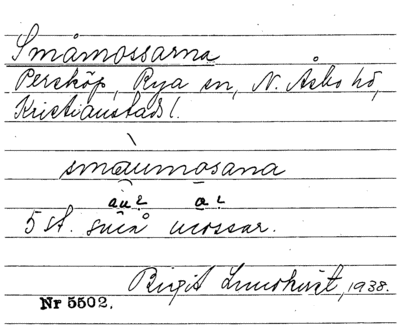 Småmossarna
Perstöp, Rya sn, N. Åsbo hd,
Kristianstads l.
småumosana
au? a?
5 st. små mossar.
Birgit Lundkvist, 1938.
Nr 5502.